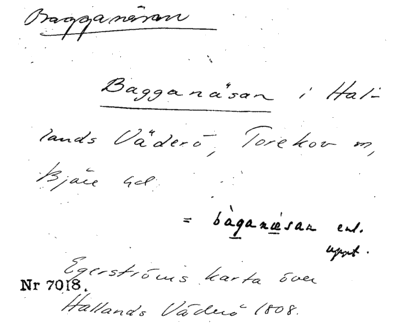 Bagganäsan
Bagganäsan i Hal-
lands Väderö, Torekov sn,
Bjäre hd
= bàganæsan enl.
uppt.
Egerströms karta över
Nr 7018.
Hallands Väderö 1808.